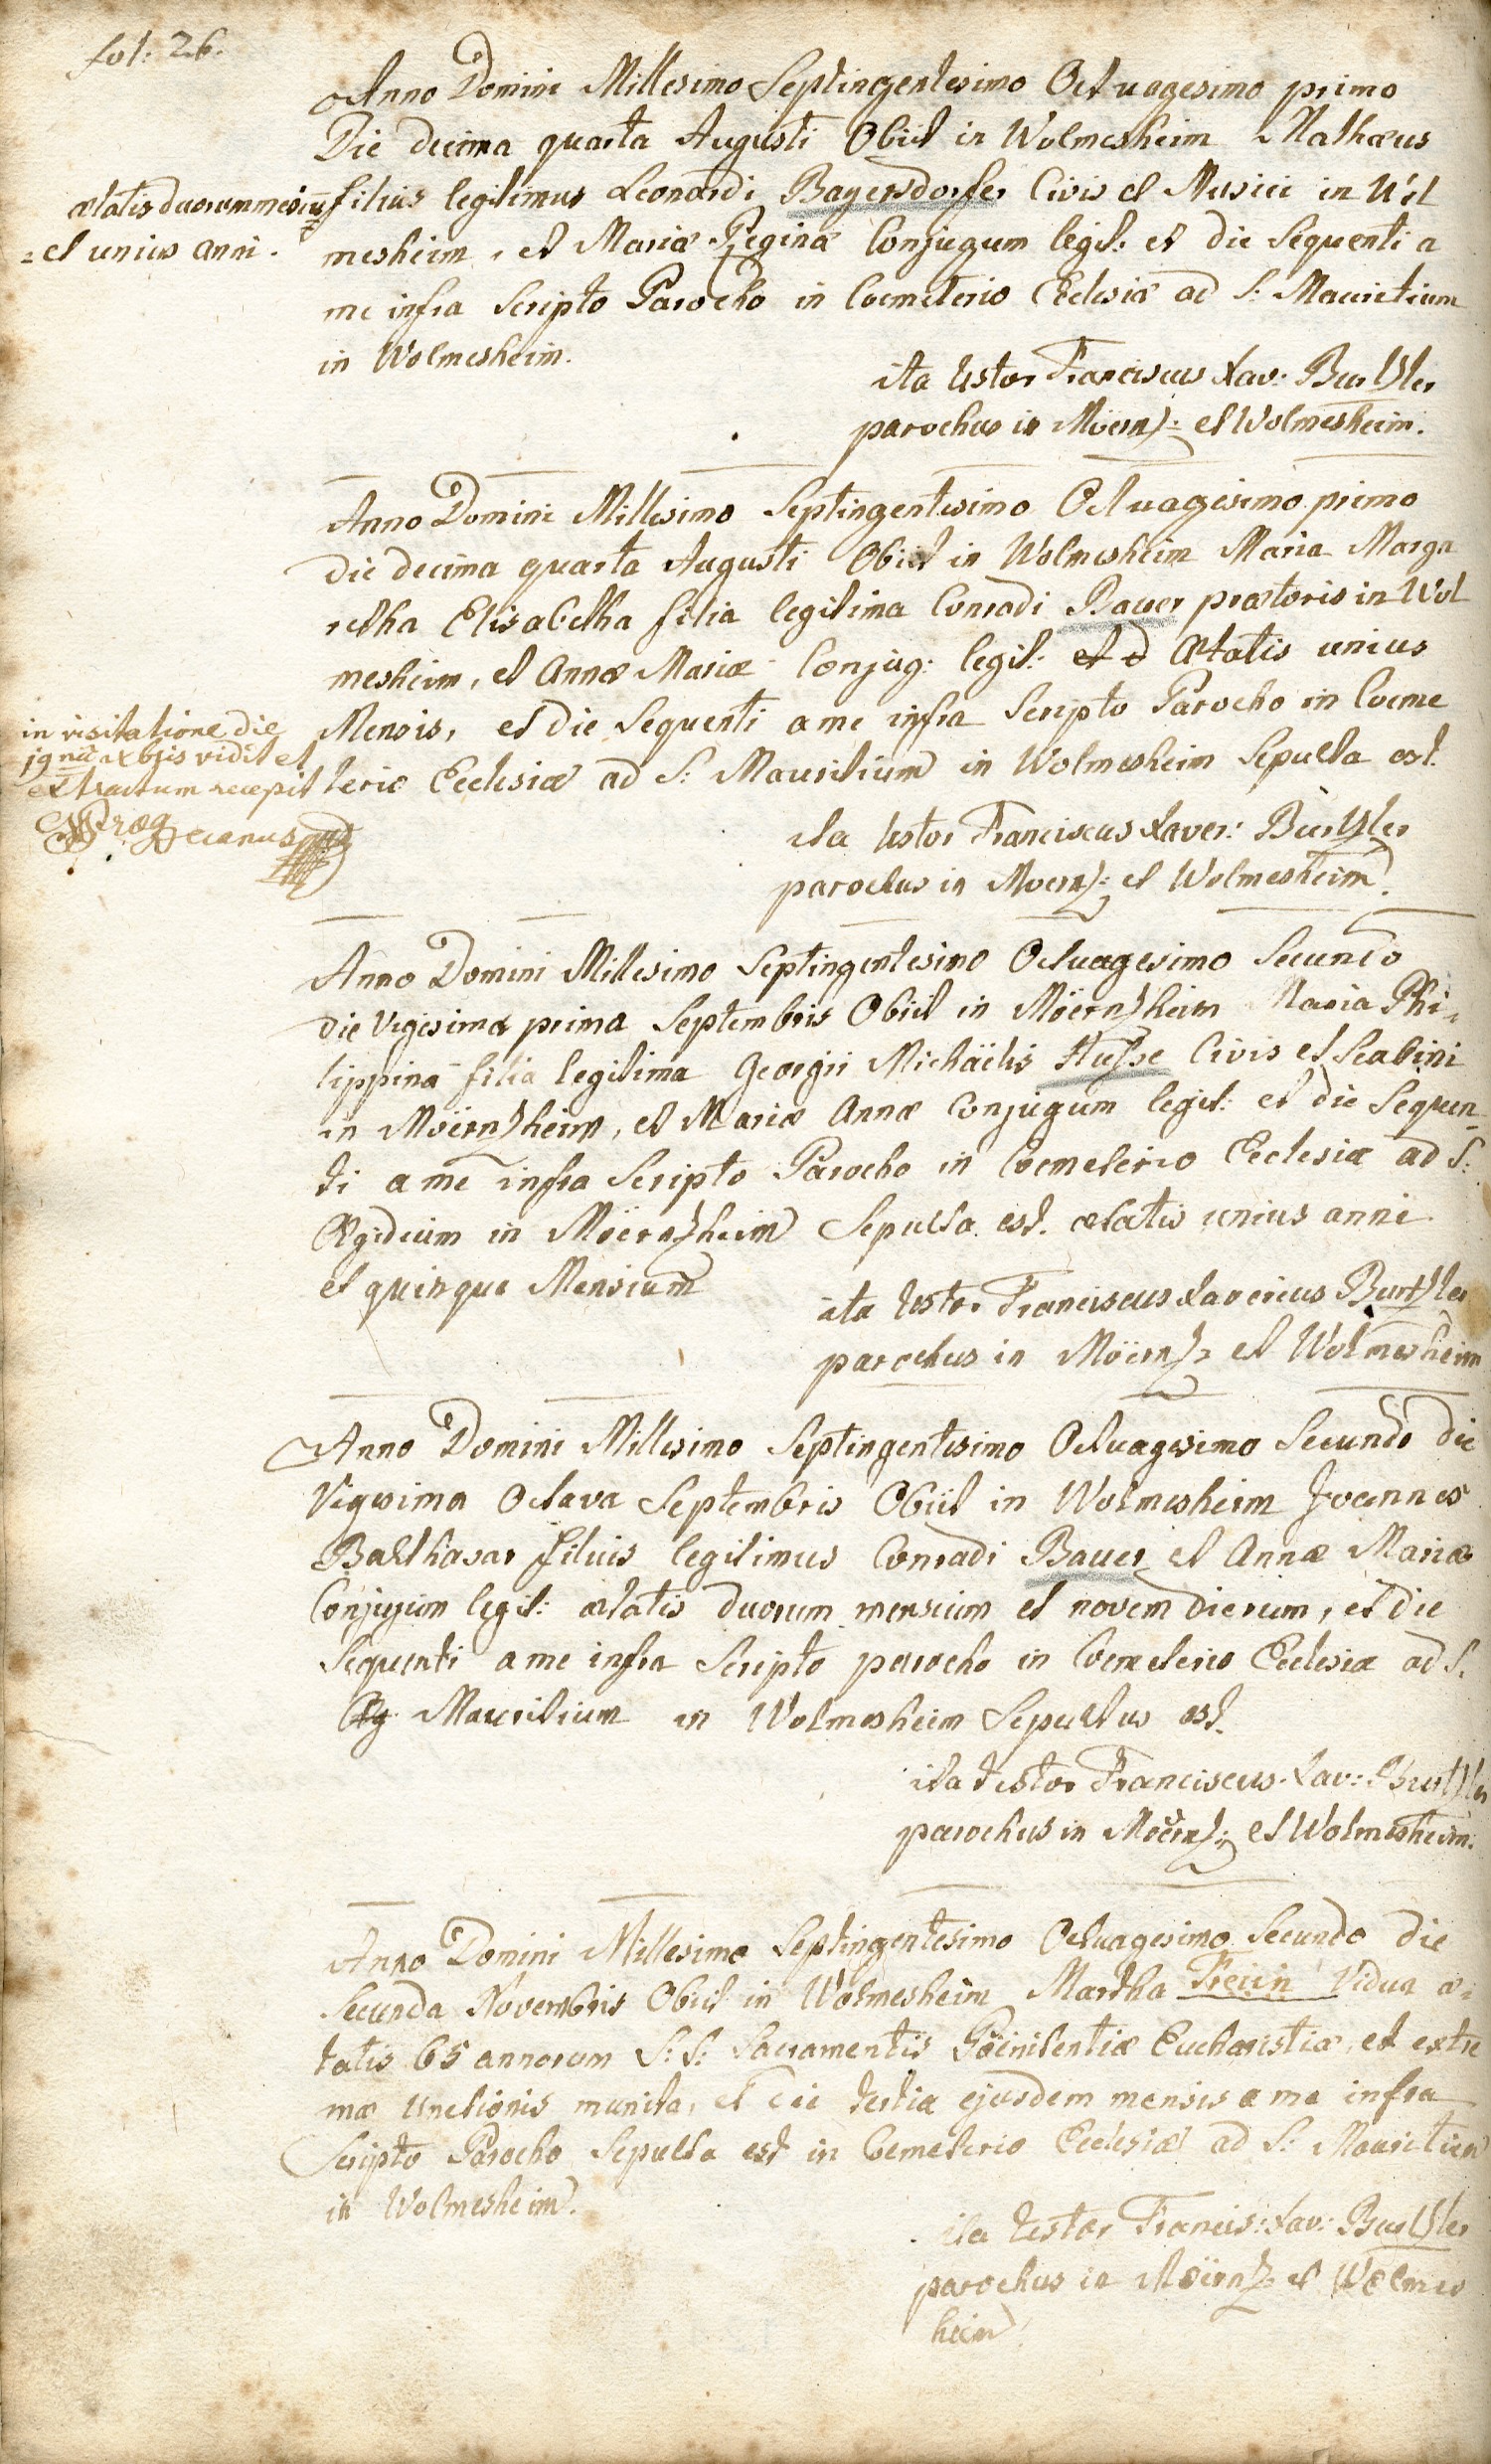 fol: 26.
Anno Domini Millesimo Septingentesimo Octuagesimo primo
Die decima quarta Augusti Obiit in Wolmesheim Mathæus
filius legitimus Leonardi Bayersdorfer Civis et Musici in Wol
mesheim, et Mariæ Reginæ Conjugum legit: et die Sequenti a
me infra Scripto Parocho in Coemeterio Eclesiæ ad S: Mauritium
in Wolmesheim.
ætatis duorum mensiũ
= et unius anni.
ita testor Franciscus Xav: Burtzler
parochus in Möernz: et Wolmesheim.
Anno Domini Millesimo Septingentesimo Octuagesimo primo
die decima quarta Augusti Obiit in Wolmesheim Maria Marga
retha Elisabetha filia legitima Conradi Bauer prætoris in Wol
mesheim, et Annæ Mariæ Conjug: legit: et d Ætatis unius
Mensis, et die Sequenti a me infra Scripto Parocho in Coeme
terio Ecclesiæ ad S: Mauritium in Wolmesheim Sepulta est.
in visitatione die
19na 8bris vidit et
extractum recepit
Decanus
ita testor Franciscus Xaver: Burtzler
parochus in Moernz: et Wolmesheim.
Anno Domini Millesimo Septingentesimo Octuagesimo Secundo
die Vigesima prima Septembris Obiit in Möernzheim Maria Phi-
lippina filia legitima Georgii Michäelis Husse Civis et Scabini
in Möernzheim, et Mariæ Annæ Conjugum legit: et die Sequen-
ti a me infra Scripto Parocho in Coemeterio Ecclesiæ ad S:
Ægidium in Möernzheim Sepulta est. ætatis unius anni
et quinque Mensium
ita testor Franciscus Xaverius Burtzler
parochus in Möernz: et Wolmesheim
Anno Domini Millesimo Septingentesimo Octuagesimo Secundo die
Vigesima Octava Septembris Obiit in Wolmesheim Joannes
Balthasar filius legitimus Conradi Bauer et Annæ Mariæ
Conjugum legit: ætatis duorum mensium et novem dierum, et die
Sequenti a me infra Scripto parocho in Coemeterio Ecclesiæ ad S.
Æg Mauritium in Wolmesheim Sepultus est.
ita testor Franciscus Xav: Burtzler
parochus in Möernz: et Wolmesheim.
Anno Domini Millesimo Septingentesimo Octuagesimo Secundo die
Secunda Novembris Obiit in Wolmesheim Martha Freiin Vidua æ-
tatis 65 annorum S: S: Sacramentis Pöenitentiæ Eucharistiæ, et extre
mæ Unctionis munita, et die tertia ejusdem mensis a me infra
Scripto Parocho Sepulta est in Coemeterio Ecclesiæ ad S: Mauritium
in Wolmesheim.
ita testor Francis: Xav: Burtzler
parochus in Möernz: et Wolmes
heim